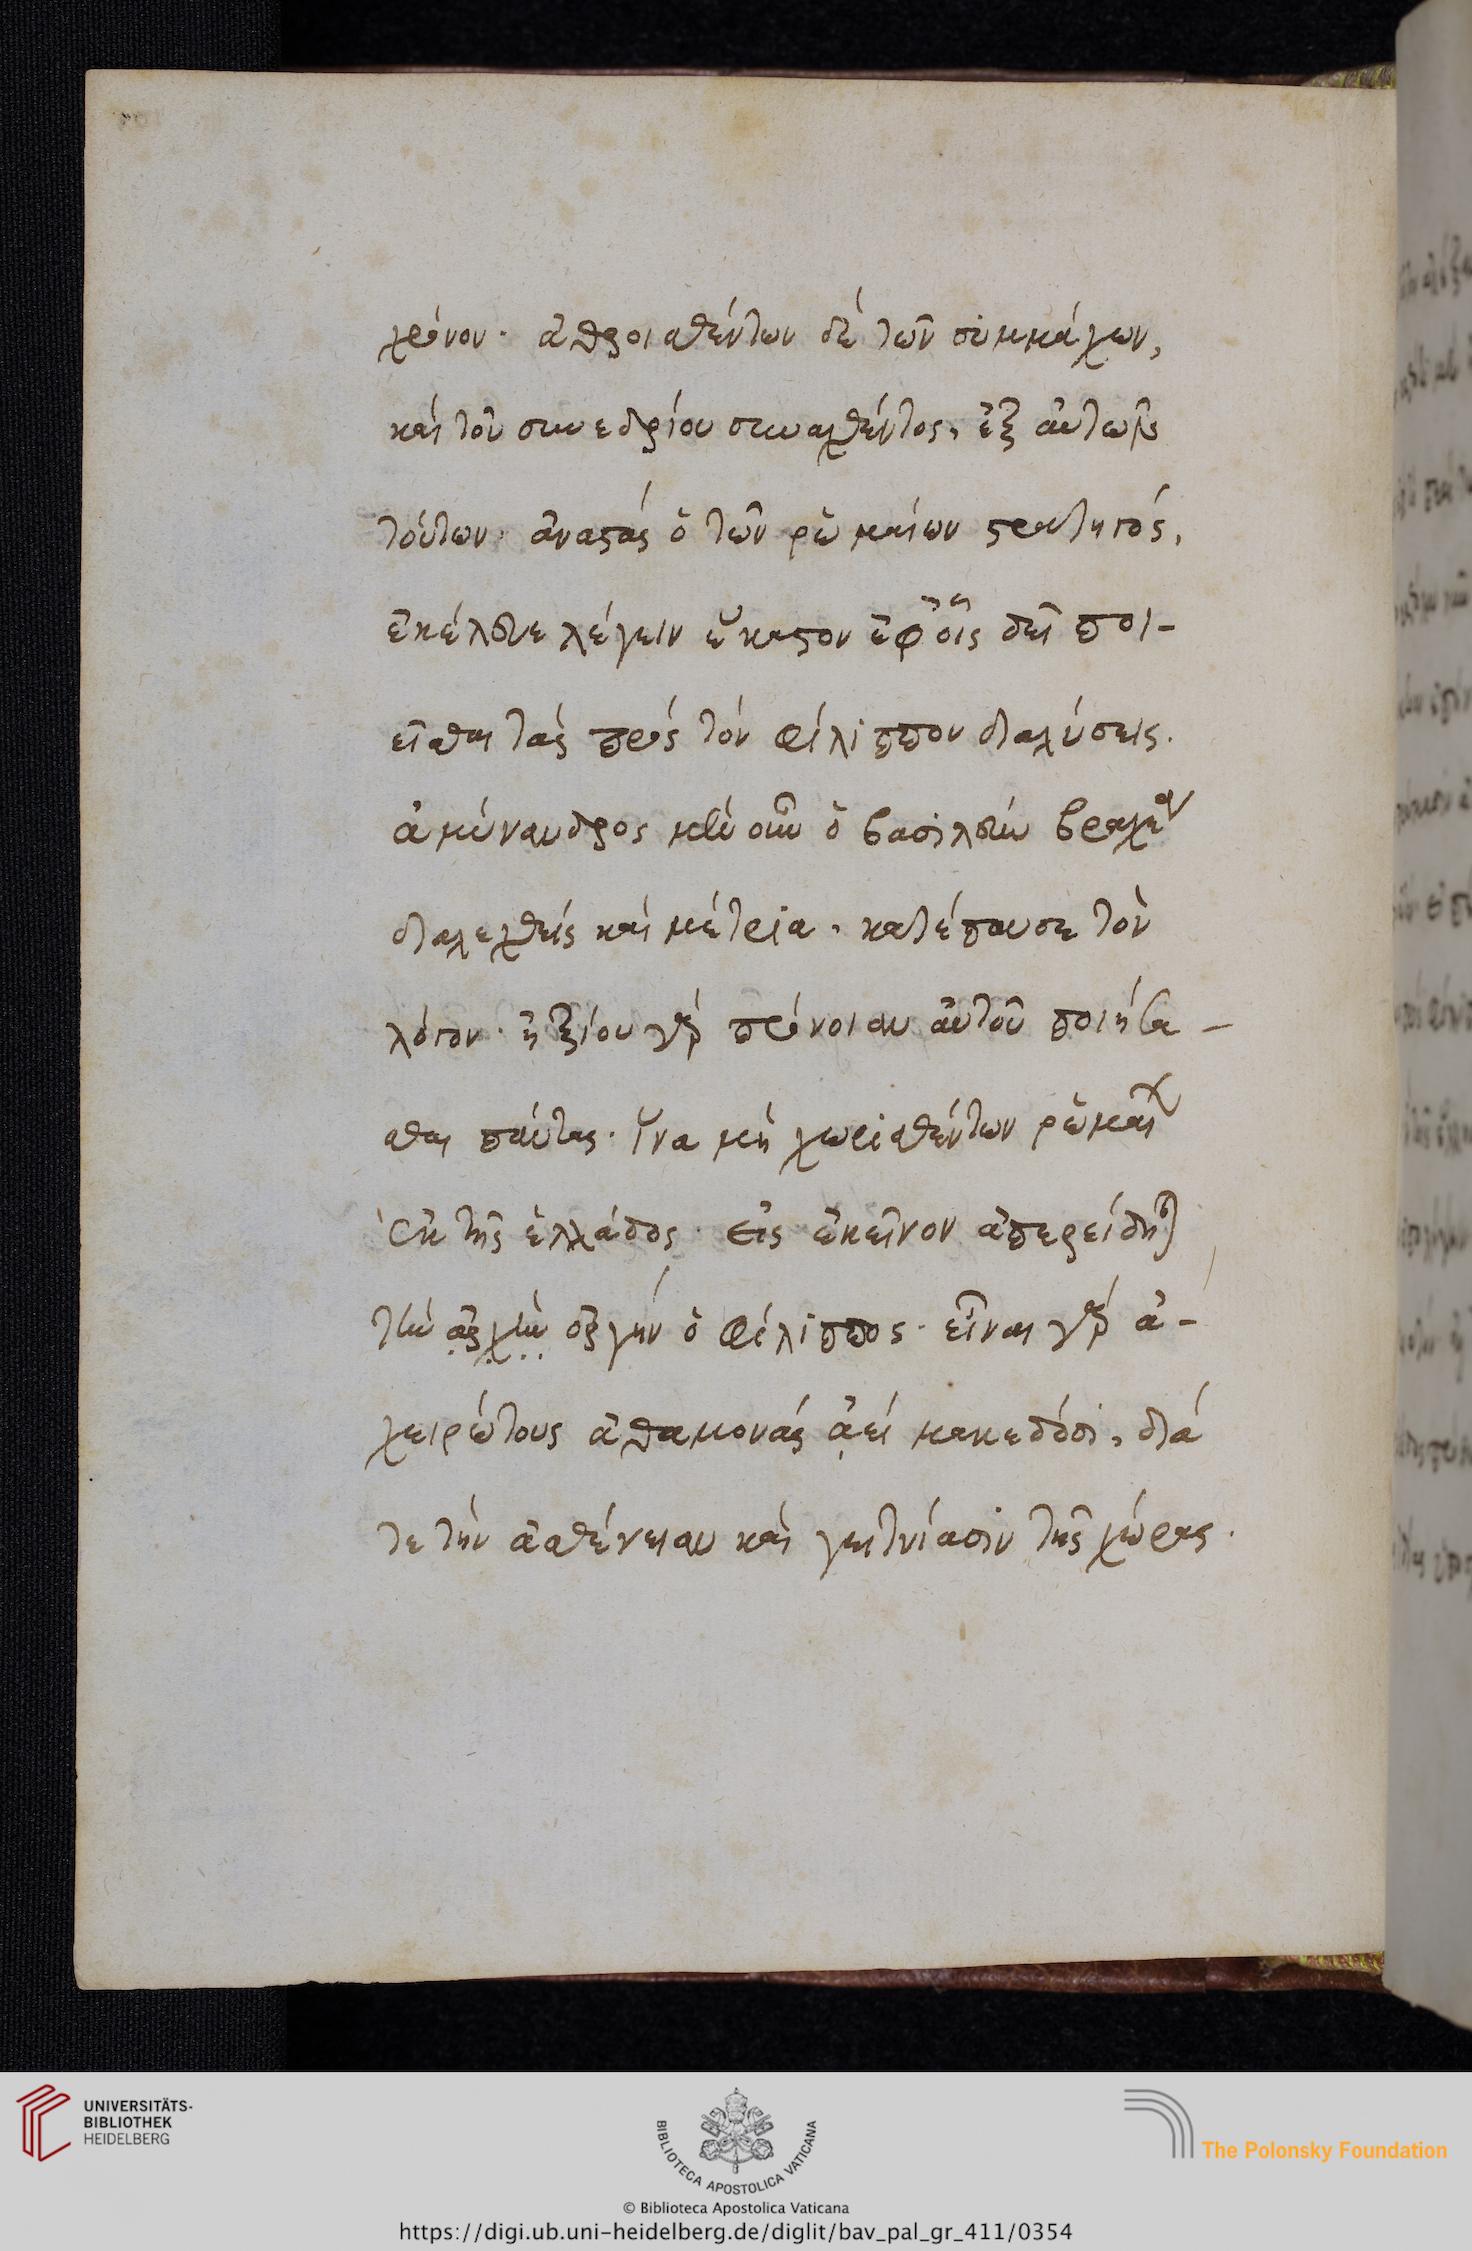 χρόνον· ἀθροισθέντων δὲ τῶν συμμάχων,
καὶ τοῦ συνεδρίου συναχθέντος, ἐξ αὐτῆς
τούτων· ἀναστὰς ὁ τῶν ῥωμαίων στρατηγός,
ἐκέλευε λέγειν ἕκαστον ἐφ᾽ οἷς δεῖ ποι-
εῖσθαι τὰς πρὸς τὸν φίλιππον διαλύσεις.
ἀμύνανδρος μὲν οὖν ὁ βασιλεὺς βραχέα
διαλεχθεὶς καὶ μέτρια, κατέπαυσε τὸν
λόγον· ἠξίου γὰρ πρόνοιαν αὐτοῦ ποιήσα-
σθαι πάντας· ἵνα μὴ χωρισθέντων ῥωμαίων
ἐκ τῆς ἑλλάδος· εἰς ἐκεῖνον ἀπερείδηται
τὴν ἀρχὴν ὀργὴν ὁ φίλιππος· εἶναι γὰρ ἀ-
χειρώτους ἀθαμονὰς ἀεὶ μακεδόσι, διά
τε τὴν ἀσθένειαν καὶ γειτνίασιν τῆς χώρας·
UNIVERSITÄTS-
BIBLIOTHEK
HEIDELBERG
BIBLIOTECA APOSTOLICA VATICANA
The Polonsky Foundation
© Biblioteca Apostolica Vaticana
https://digi.ub.uni-heidelberg.de/diglit/bav_pal_gr_411/0354